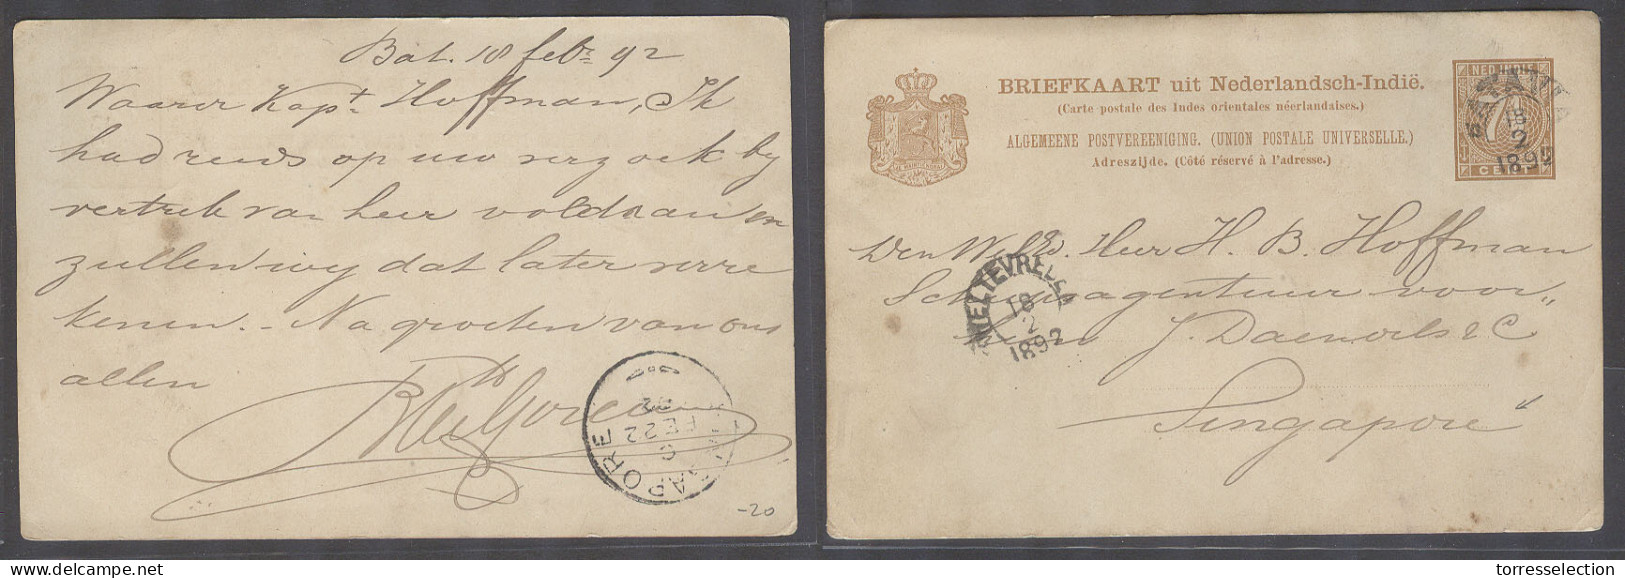 Bat. 18 feb. 92
Waarde Kapt. Hoffman, Ik
had reeds op uw verzoek bij
vertrek van hier voldaan en
zullen wij dat later verre
kenen. - Na groeten van ons
allen
SINGAPORE
FE 22
92
-20
BRIEFKAART uit Nederlandsch-Indië.
(Carte postale des Indes orientales néerlandaises.)
ALGEMEENE POSTVEREENIGING. (UNION POSTALE UNIVERSELLE.)
Adreszijde. (Côté réservé à l'adresse.)
NED. INDIE
7½
CENT
BATAVIA
18
2
1892
Den Heer H. B. Hoffman
Scheepsagentuur voor„
heen J. Daendels & C
Singapore
WELTEVREDEN
18
2
1892
delcampe.net
torresselection